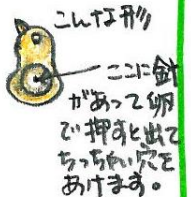 こんな形
ここに針
があって卵
で押すと出て
ちっちゃい穴を
あけます。